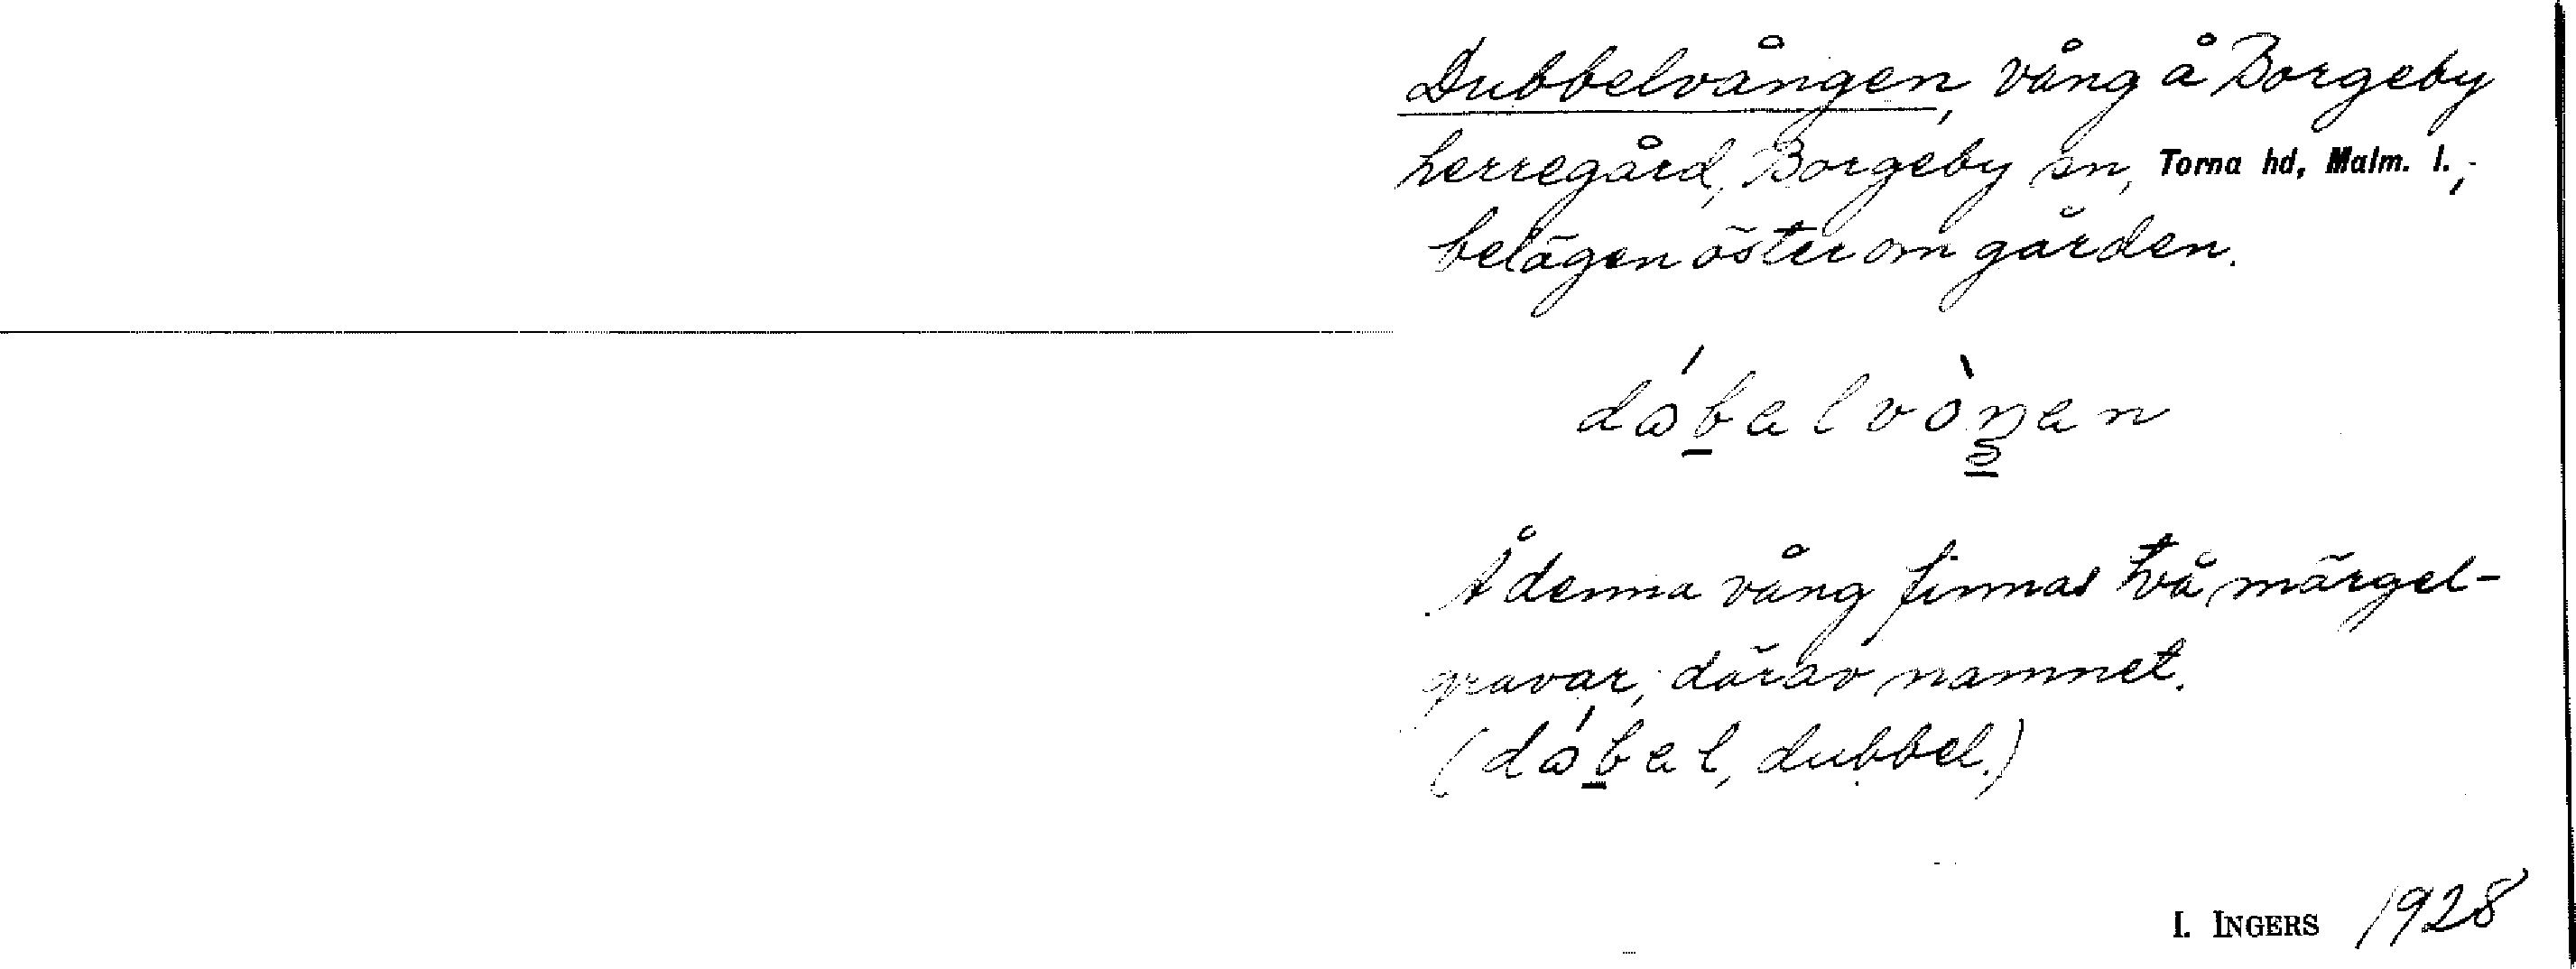 Dubbelvången, vång å Borgeby
herregård, Borgeby sn, Torna hd, Malm. l.,
belägen öster om gården.
Å denna vång finnas två märgel-
gravar, därav namnet.
dubbel.)
I. INGERS 1928